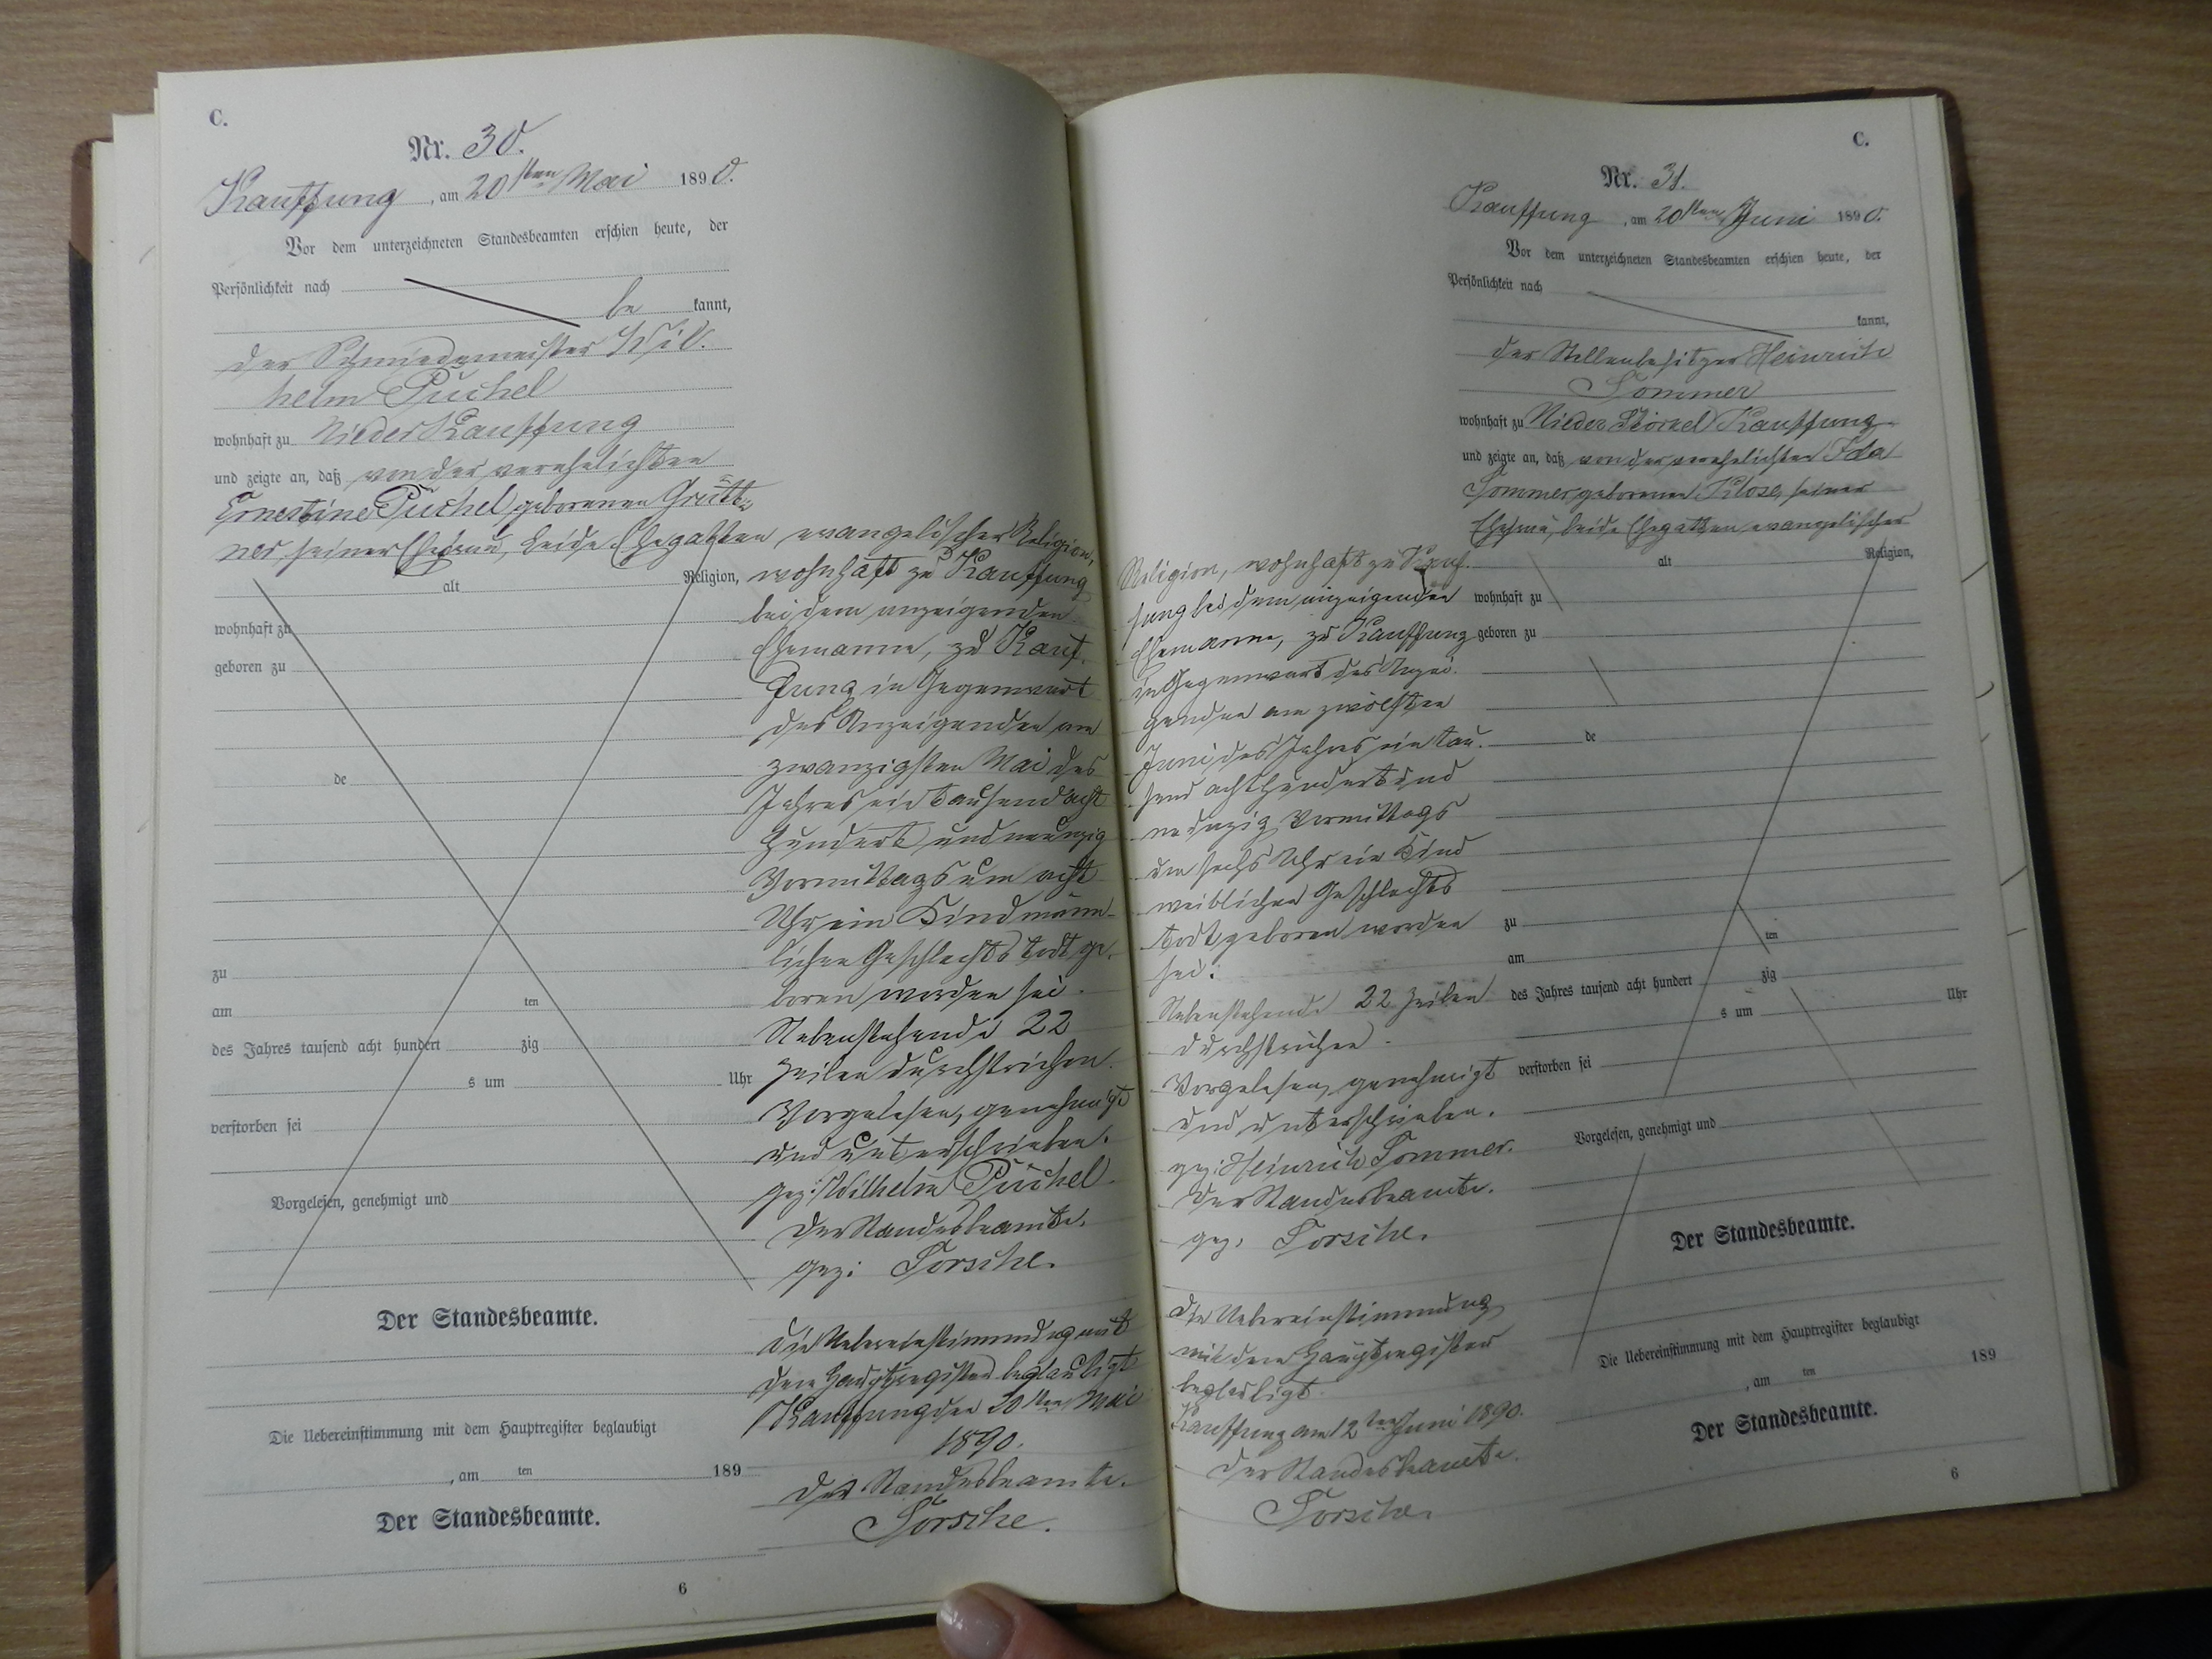 C.
Nr. 30.
Kauffung, am 20sten Mai 1890.
Vor dem unterzeichneten Standesbeamten erschien heute, der
Persönlichkeit nach
be kannt,
der Schmiedemeister Wil-
helm Püschel
wohnhaft zu Nieder Kauffung
und zeigte an, daß von der verehelichten
Ernestine Püschel, geborenen Grütt-
ner, seiner Ehefrau, beide Ehegatten evangelischer Religion,
alt Religion,
wohnhaft zu
geboren zu
de
zu
am ten
des Jahres tausend acht hundert zig
s um Uhr
verstorben sei
Vorgelesen, genehmigt und
Der Standesbeamte.
Die Uebereinstimmung mit dem Hauptregister beglaubigt
, am ten 189
Der Standesbeamte.
6
wohnhaft zu Kauffung
bei dem anzeigenden
Ehemanne, zu Kauf-
fung in Gegenwart
des Anzeigenden am
zwanzigsten Mai des
Jahres eintausend acht
hundert und neunzig
Vormittags um acht
Uhr ein Kind männ-
lichen Geschlechts todt ge-
boren worden sei.
Nebenstehende 22
Zeilen durchstrichen.
Vorgelesen, genehmigt
und unterschrieben.
gez: Wilhelm Püschel.
Der Standesbeamte.
gez: Torsche.
Die Uebereinstimmung mit
dem Hauptregister beglaubigt
Kauffung den 20sten Mai
1890.
Der Standesbeamte.
Torsche.
C.
Nr. 31.
Kauffung, am 20sten Juni 1890.
Vor dem unterzeichneten Standesbeamten erschien heute, der
Persönlichkeit nach
kannt,
der Stellenbesitzer Heinrich
Sommer
wohnhaft zu Nieder Kauffung
und zeigte an, daß von der verehelichten Ida
Sommer geborenen Klose, seiner
Ehefrau, beide Ehegatten evangelischer
Religion, wohnhaft zu Kauf-
fung bei dem anzeigenden
Ehemanne, zu Kauffung
in Gegenwart des Anzei-
genden am zwölften
Juni des Jahres ein tau-
send acht hundert und
neunzig Vormittags
um sechs Uhr ein Kind
weiblichen Geschlechts
todt geboren worden
sei.
Nebenstehende 22 Zeilen
durchstrichen.
Vorgelesen, genehmigt
und unterschrieben.
gez: Heinrich Sommer.
Der Standesbeamte.
gez. Torsche.
Die Uebereinstimmung
mit dem Hauptregister
beglaubigt.
Kauffung am 12ten Juni 1890.
Der Standesbeamte.
Torsche.
alt Religion,
wohnhaft zu
geboren zu
de
zu
am ten
des Jahres tausend acht hundert zig
s um Uhr
verstorben sei
Vorgelesen, genehmigt und
Der Standesbeamte.
Die Uebereinstimmung mit dem Hauptregister beglaubigt
, am ten 189
Der Standesbeamte.
6